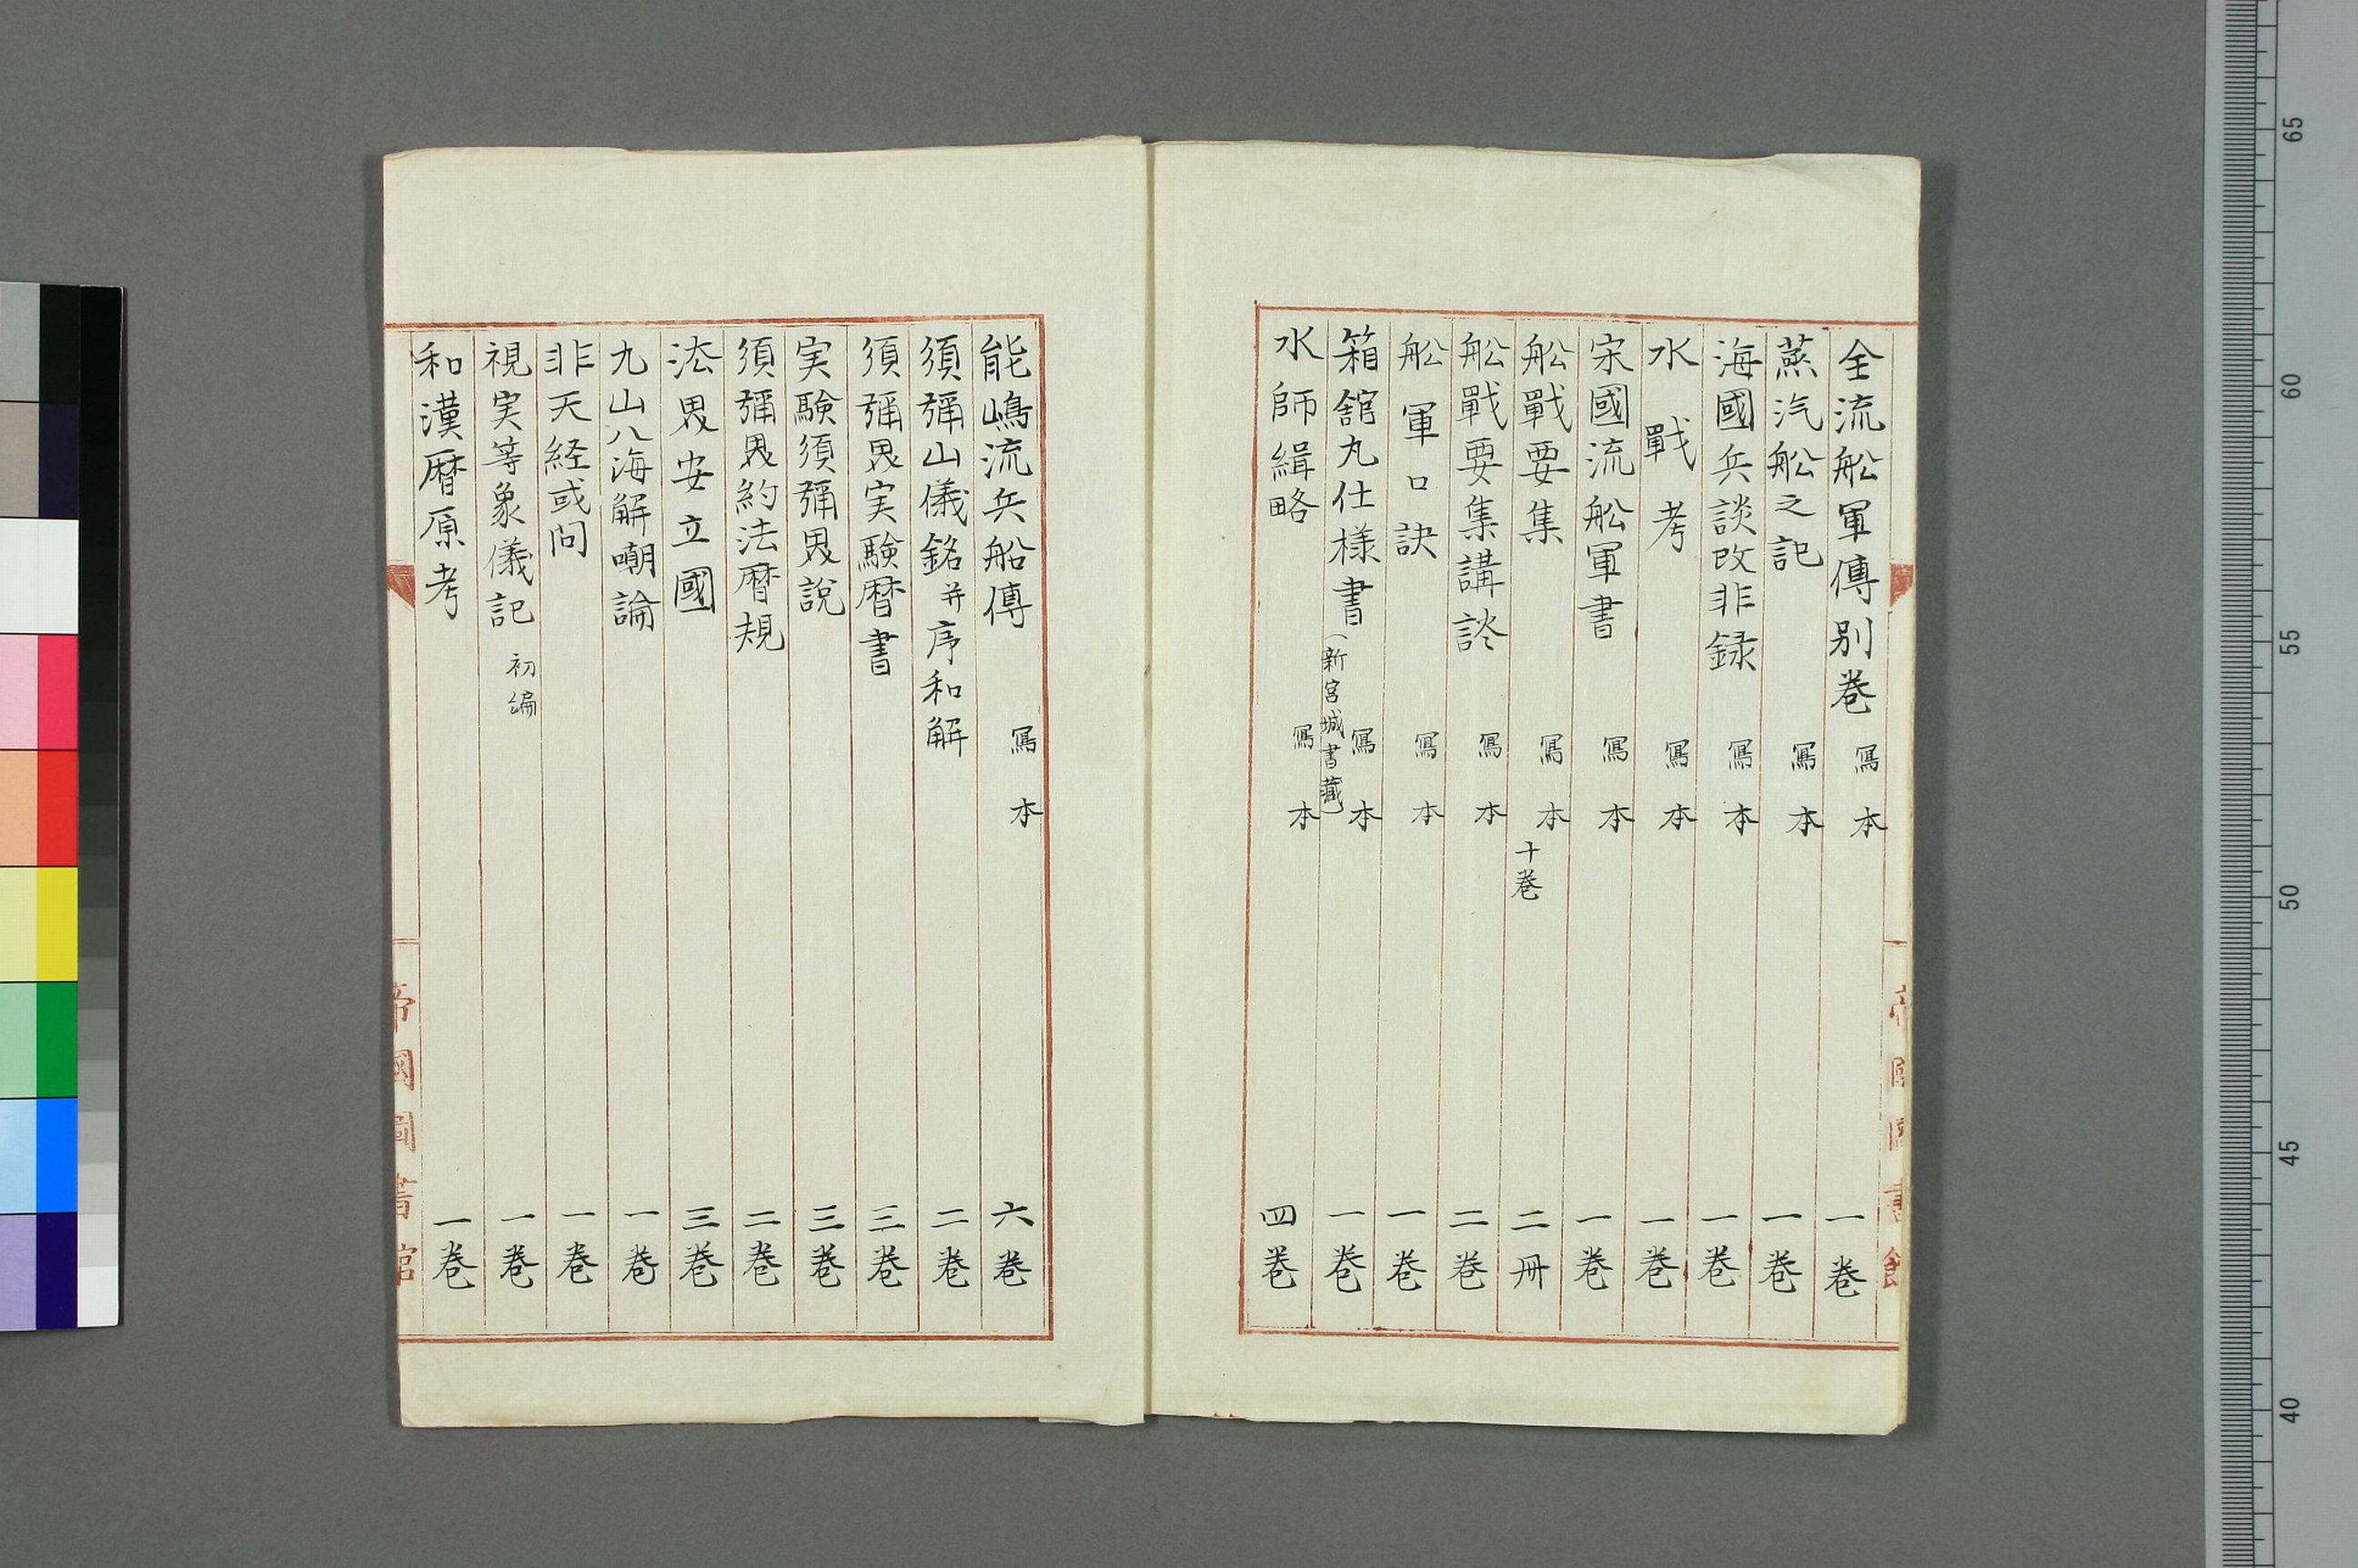 全流舩軍傳別巻 寫本 一巻
蒸汽舩之記 寫本 一巻
海國兵談改非録 寫本 一巻
水戰考 寫本 一巻
宋國流舩軍書 寫本 一巻
舩戰要集 寫本 十巻 二冊
舩戰要集講談 寫本 二巻
舩軍口訣 寫本 一巻
箱舘丸仕様書(新宮城書藏) 寫本 一巻
水師緝略 寫本 四巻
能嶋流兵船傳 寫本 六巻
須彌山儀銘并序和解 二巻
須彌界実験暦書 三巻
実験須彌界說 三巻
須彌界約法暦規 二巻
法界安立國 三巻
九山八海解嘲論 一巻
非天経或问 一巻
視実等象儀記 初編 一巻
和漢暦原考 一巻
帝國圖書館
帝國圖書館
65
60
55
50
45
40